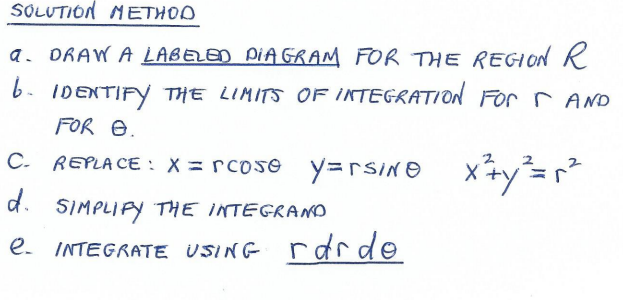 SOLUTION METHOD
a. DRAW A LABELED DIAGRAM FOR THE REGION R
b. IDENTIFY THE LIMITS OF INTEGRATION FOR r AND
FOR θ.
C. REPLACE: X = rcosθ y=rsinθ x²+y²=r²
d. SIMPLIFY THE INTEGRAND
e. INTEGRATE USING rdrdθ